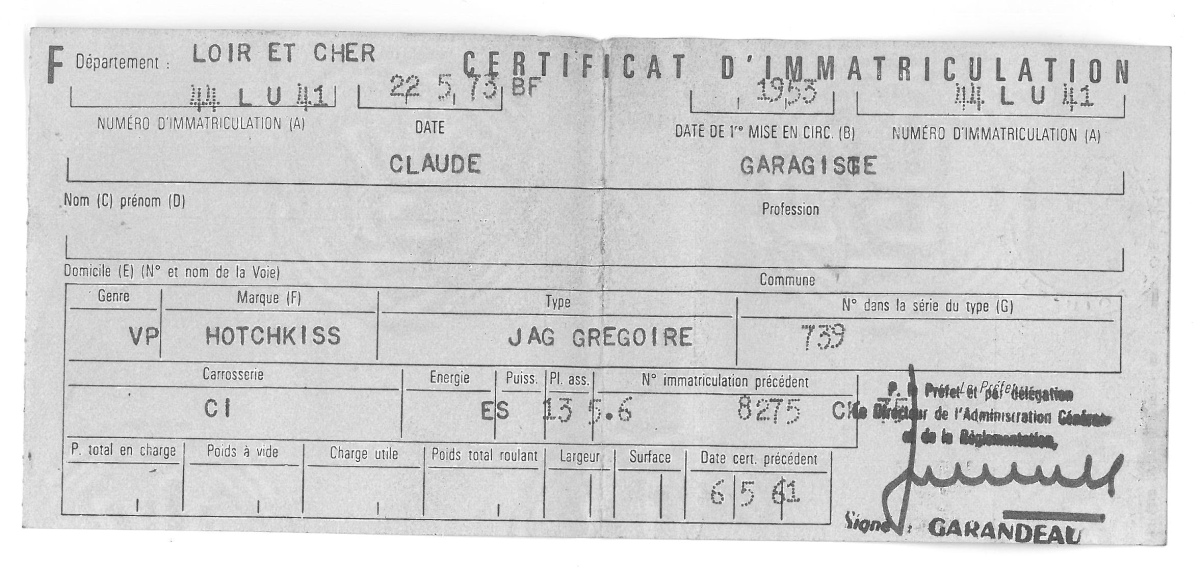 F Département : LOIR ET CHER CERTIFICAT D'IMMATRICULATION
44 LU 41 22 5 73 BF 1953 44 LU 41
NUMÉRO D'IMMATRICULATION (A) DATE DATE DE 1re MISE EN CIRC. (B) NUMÉRO D'IMMATRICULATION (A)
CLAUDE GARAGISTE
Nom (C) prénom (D) Profession
Domicile (E) (N° et nom de la Voie) Commune
Genre Marque (F) Type N° dans la série du type (G)
VP HOTCHKISS JAG GREGOIRE 739
Carrosserie Energie Puiss. Pl. ass. N° immatriculation précédent
CI ES 13 5.6 8275 75
P. le Préfet et par délégation
Le Directeur de l'Administration Générale
et de la Réglementation,
P. total en charge Poids à vide Charge utile Poids total roulant Largeur Surface Date cert. précédent
6 5 61
Signé : GARANDEAU